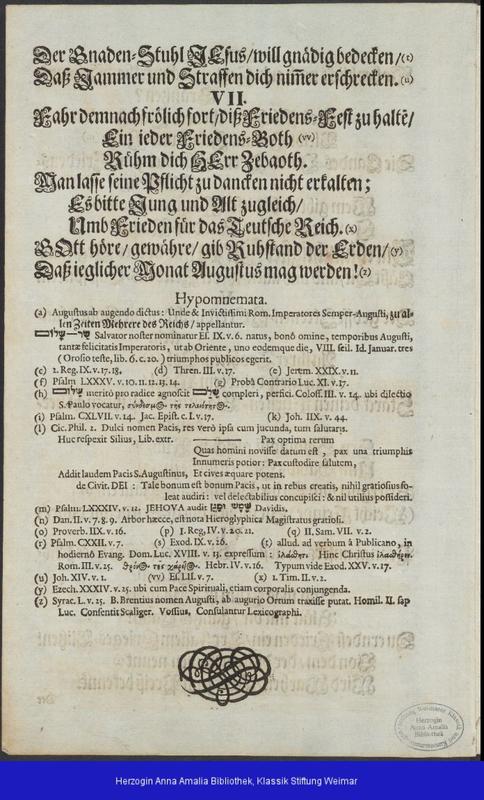 Der Gnaden-Stuhl JEsus/will gnädig bedecken/(t)
Daß Jammer und Straffen dich nim̃er erschrecken.(u)
VII.
Fahr demnach frölich fort/diß Friedens-Fest zu haltẽ/
Ein ieder Friedens-Both (vv)
Rühm dich HErr Zebaoth.
Man lasse seine Pflicht zu dancken nicht erkalten;
Es bitte Jung und Alt zugleich/
Umb Frieden für das Teutsche Reich.(x)
GOtt höre/gewähre/gib Ruhstand der Erden/(y)
Daß ieglicher Monat Augustus mag werden!(z)
Hypomnemata.
(a) Augustus ab augendo dictus: Unde & Invictissimi Rom. Imperatores Semper-Augusti, zu al-
len Zeiten Mehrere des Reichs/appellantur.
Salvator noster nominatur Es. IX. v. 6. natus, bonô omine, temporibus Augusti,
tantæ felicitatis Imperatoris, ut ab Oriente, uno eodemque die, VIII. scil. Id. Januar. tres
(Orosio teste, lib. 6. c. 20.) triumphos publicos egerit.
(c) 1. Reg. IX. v. 17. 18. (d) Thren. III. v. 17. (e) Jerem. XXIX. v. 11.
(f) Psalm LXXXV. v. 10. 11. 12. 13. 14. (g) Probâ Contrario Luc. XI. v. 17.
(h) שלום meritò pro radice agnoscit שלם compleri, perfici. Coloss. III. v. 14. ubi dilectio
S. Paulo vocatur,
(i) Psalm. CXLVII. v. 14. Jac. Epist. c. I. v. 17. (k) Joh. IIX. v. 44.
(l) Cic. Phil. 2. Dulci nomen Pacis, res verò ipsa cum jucunda, tum salutaris.
Huc respexit Silius, Lib. extr. Pax optima rerum
Quas homini novisse datum est, pax una triumphis
Innumeris potior: Pax custodire salutem,
Addit laudem Pacis S. Augustinus, Et cives æquare potens.
de Civit. DEI: Tale bonum est bonum Pacis, ut in rebus creatis, nihil gratiosius so-
leat audiri: vel delectabilius concupisci: & nil utilius possideri.
(m) Psalm. LXXXIV. v. 12. JEHOVA audit שמש ומגן Davidis.
(n) Dan. II. v. 7. 8. 9. Arbor hæcce, est nota Hieroglyphica Magistratus gratiosi.
(o) Proverb. IIX. v. 16. (p) I. Reg. IV. v. 20. 21. (q) II. Sam. VII. v. 2.
(r) Psalm. CXXII. v. 7. (s) Exod. IX. v. 26. (t) allud. ad verbum à Publicano, in
hodiernô Evang. Dom. Luc. XVIII. v. 13. expressum: Hinc Christus
Rom. III. v. 25. Hebr. IV. v. 16. Typum vide Exod. XXV. v. 17.
(u) Joh. XIV. v. 1. (vv) Es. LII. v. 7. (x) 1. Tim. II. v. 2.
(y) Ezech. XXXIV. v. 25. ubi cum Pace Spirituali, etiam corporalis conjungenda.
(z) Syrac. L. v. 25. B. Brentius nomen Augusti, ab augurio Ortum traxisse putat. Homil. II. sup
Luc. Consentit Scaliger. Vossius, Consulantur Lexicographi.
Herzogin
Anna Amalia
Bibliothek
Herzogin Anna Amalia Bibliothek, Klassik Stiftung Weimar